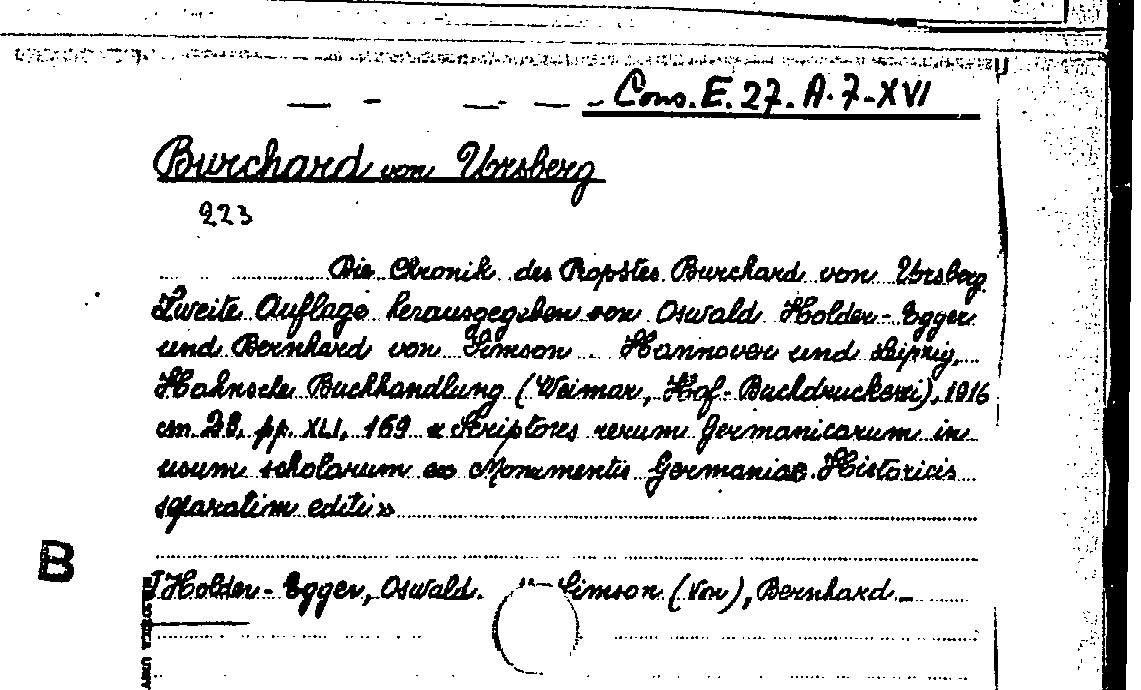 Cons. E. 27. A. 7-XVI
Burchard von Ursberg
223
Die Chronik des Propstes Burchard von Ursberg.
Zweite Auflage herausgegeben von Oswald Holder-Egger
und Bernhard von Simson. Hannover und Leipzig,
Hahnsche Buchhandlung (Weimar, Hof-Buchdruckerei), 1916
cm. 23, pp. XLI, 169 « Scriptores rerum Germanicarum in
usum scholarum ex Monumentis Germaniae Historicis
separatim editi »
B
Holder-Egger, Oswald. Simson (Von), Bernhard